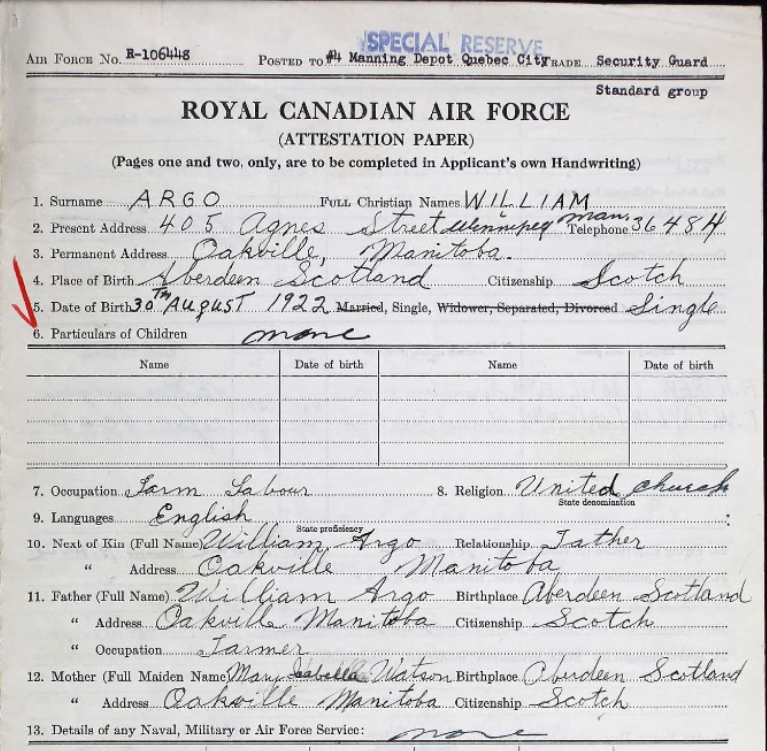 SPECIAL RESERVE
AIR FORCE NO. R-106448 POSTED TO #4 Manning Depot Quebec City TRADE Security Guard
Standard group
ROYAL CANADIAN AIR FORCE
(ATTESTATION PAPER)
(Pages one and two, only, are to be completed in Applicant's own Handwriting)
1. Surname ARGO FULL Christian Names WILLIAM
2. Present Address 405 Agnes Street Winnipeg Man. Telephone 36484
3. Permanent Address Oakville, Manitoba.
4. Place of Birth Aberdeen Scotland Citizenship Scotch
5. Date of Birth 30TH AUGUST 1922 Married, Single, Widower, Separated, Divorced Single
6. Particulars of Children none
Name Date of birth Name Date of birth
7. Occupation Farm Labour 8. Religion United church
State denomination
9. Languages English
State proficiency
10. Next of Kin (Full Name) William Argo Relationship Father
" Address Oakville Manitoba
11. Father (Full Name) William Argo Birthplace Aberdeen Scotland
" Address Oakville Manitoba Citizenship Scotch
" Occupation Farmer
12. Mother (Full Maiden Name) Mary Isabella Watson Birthplace Aberdeen Scotland
" Address Oakville Manitoba Citizenship Scotch
13. Details of any Naval, Military or Air Force Service: none